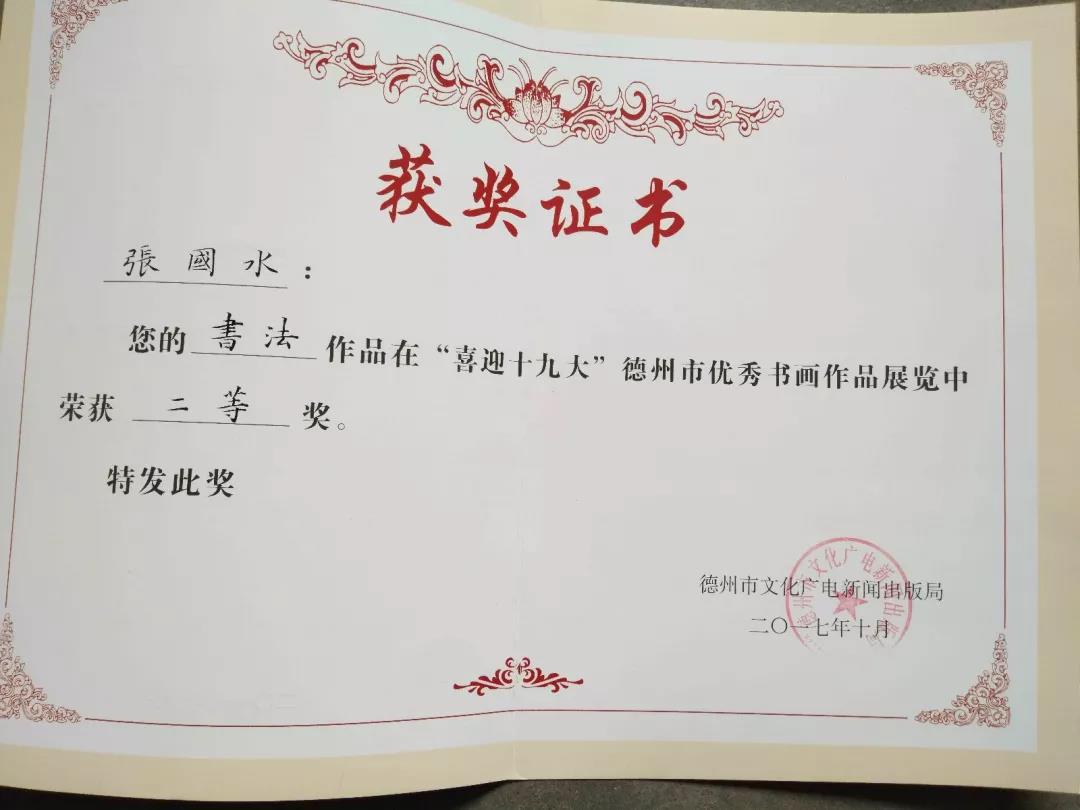 获奖证书
張國水：
您的書法作品在“喜迎十九大”德州市优秀书画作品展览中
荣获 二等 奖。
特发此奖
德州市文化广电新闻出版局
二〇一七年十月
德州市文化广电新闻出版局